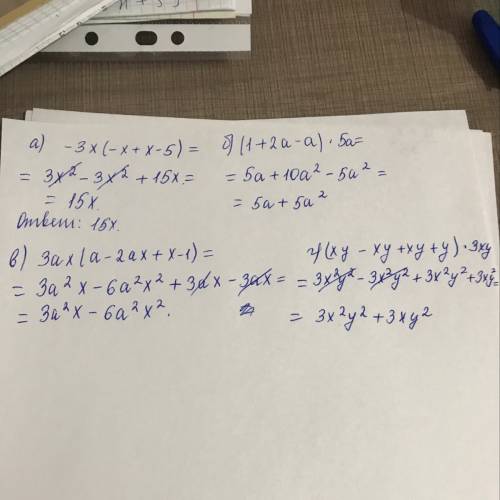 а) -3x(-x+x-5) =
= 3x² - 3x² + 15x =
= 15x
Ответ: 15x.
б) (1+2a-a) · 5a =
= 5a + 10a² - 5a² =
= 5a + 5a²
в) 3ax(a-2ax+x-1) =
= 3a²x - 6a²x² + 3ax - 3ax =
= 3a²x - 6a²x².
г) (xy - xy + xy + y) · 3xy
= 3x²y² - 3x²y² + 3x²y² + 3xy² =
= 3x²y² + 3xy²